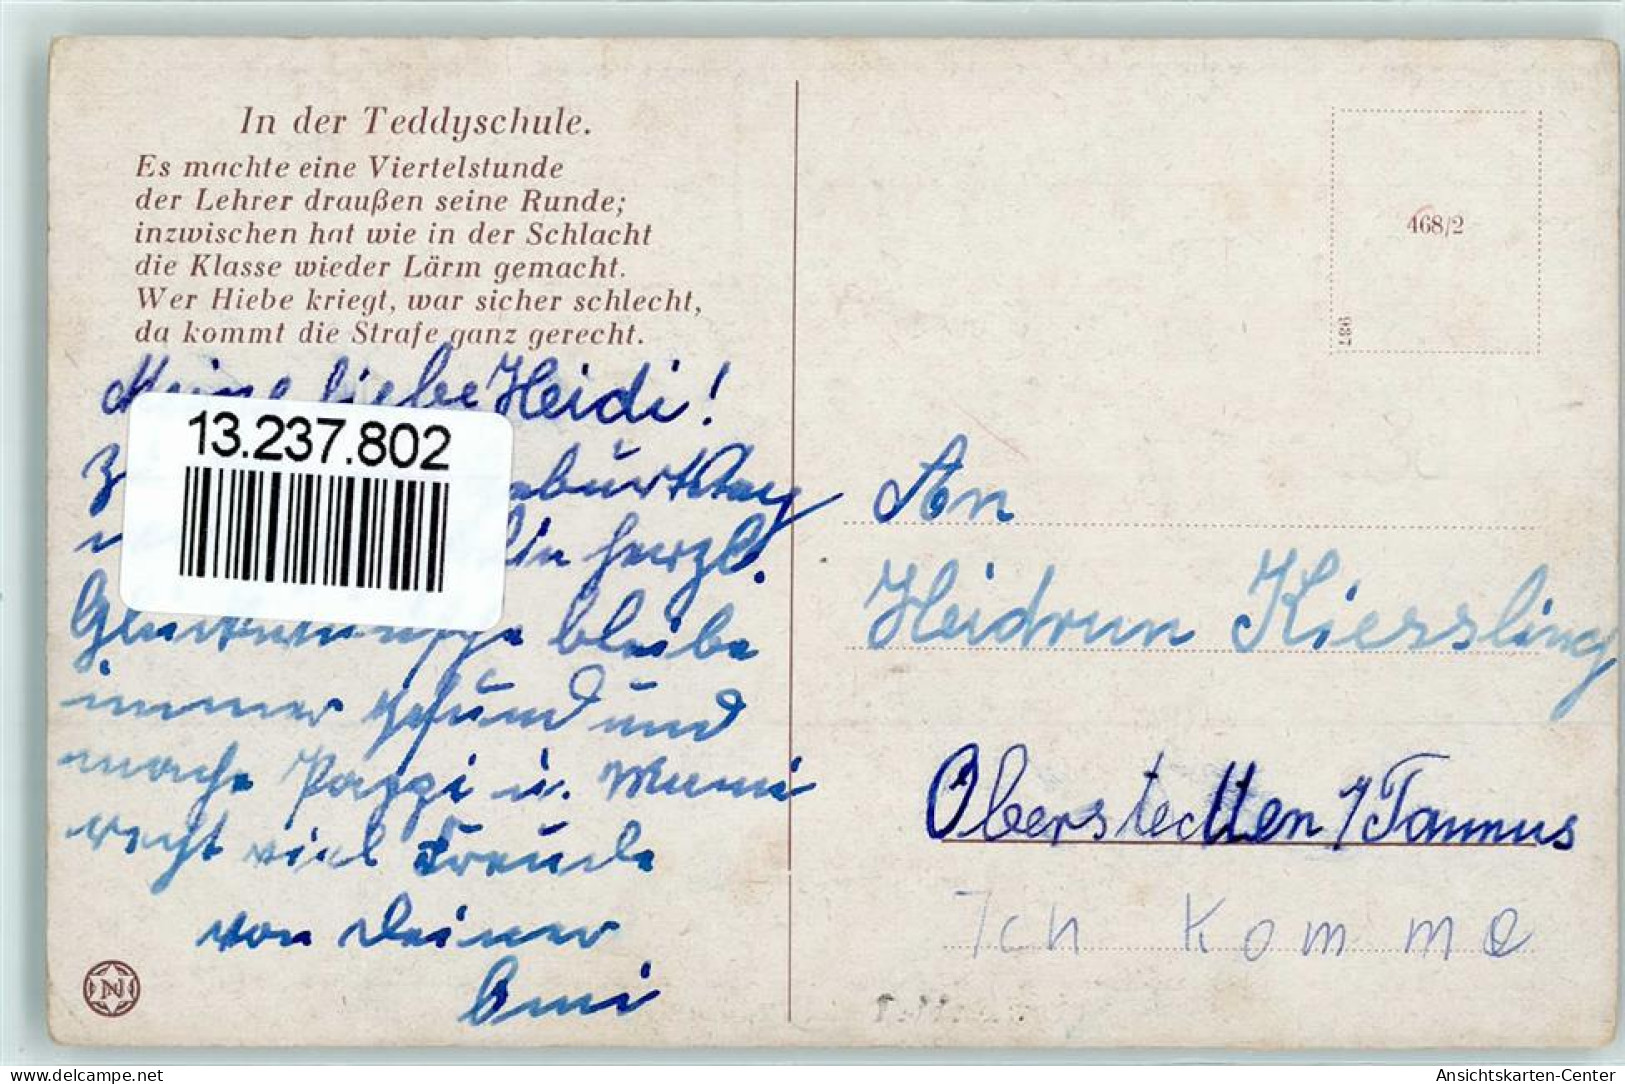 In der Teddyschule.
Es machte eine Viertelstunde
der Lehrer draußen seine Runde;
inzwischen hat wie in der Schlacht
die Klasse wieder Lärm gemacht.
Wer Hiebe kriegt, war sicher schlecht,
da kommt die Strafe ganz gerecht.
Meine liebe Heidi!
13.237.802
herzl.
Glückwünsche bleibe
immer gesund und
mache Pappi u. Mummi
recht viel Freude
von Deiner
Omi
N
468/2
987
An
Heidrun Kiessling
Oberstedten / Taunus
Ich komme
oldthing.de
Ansichtskarten-Center